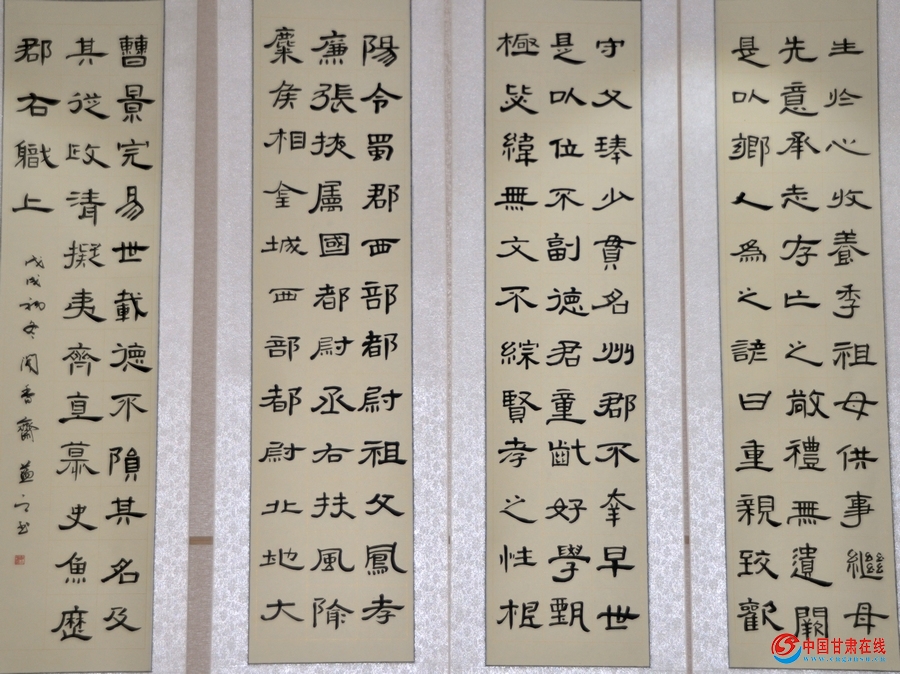 生於心收養季祖母供事繼母
先意承志存亡之敬禮無遺闕
是以鄉人為之諺曰重親致歡
守父琫少貫名州郡不幸早世
是以位不副德君童齔好學甄
極毖緯無文不綜賢孝之性根
陽令蜀郡西部都尉祖父鳳孝
廉張掖屬國都尉丞右扶風隃
麋侯相金城西部都尉北地大
曹景完易世載德不隕其名及
其從政清擬夷齊直慕史魚歷
郡右職上
戊戌初冬闻香齋书
中国甘肃在线